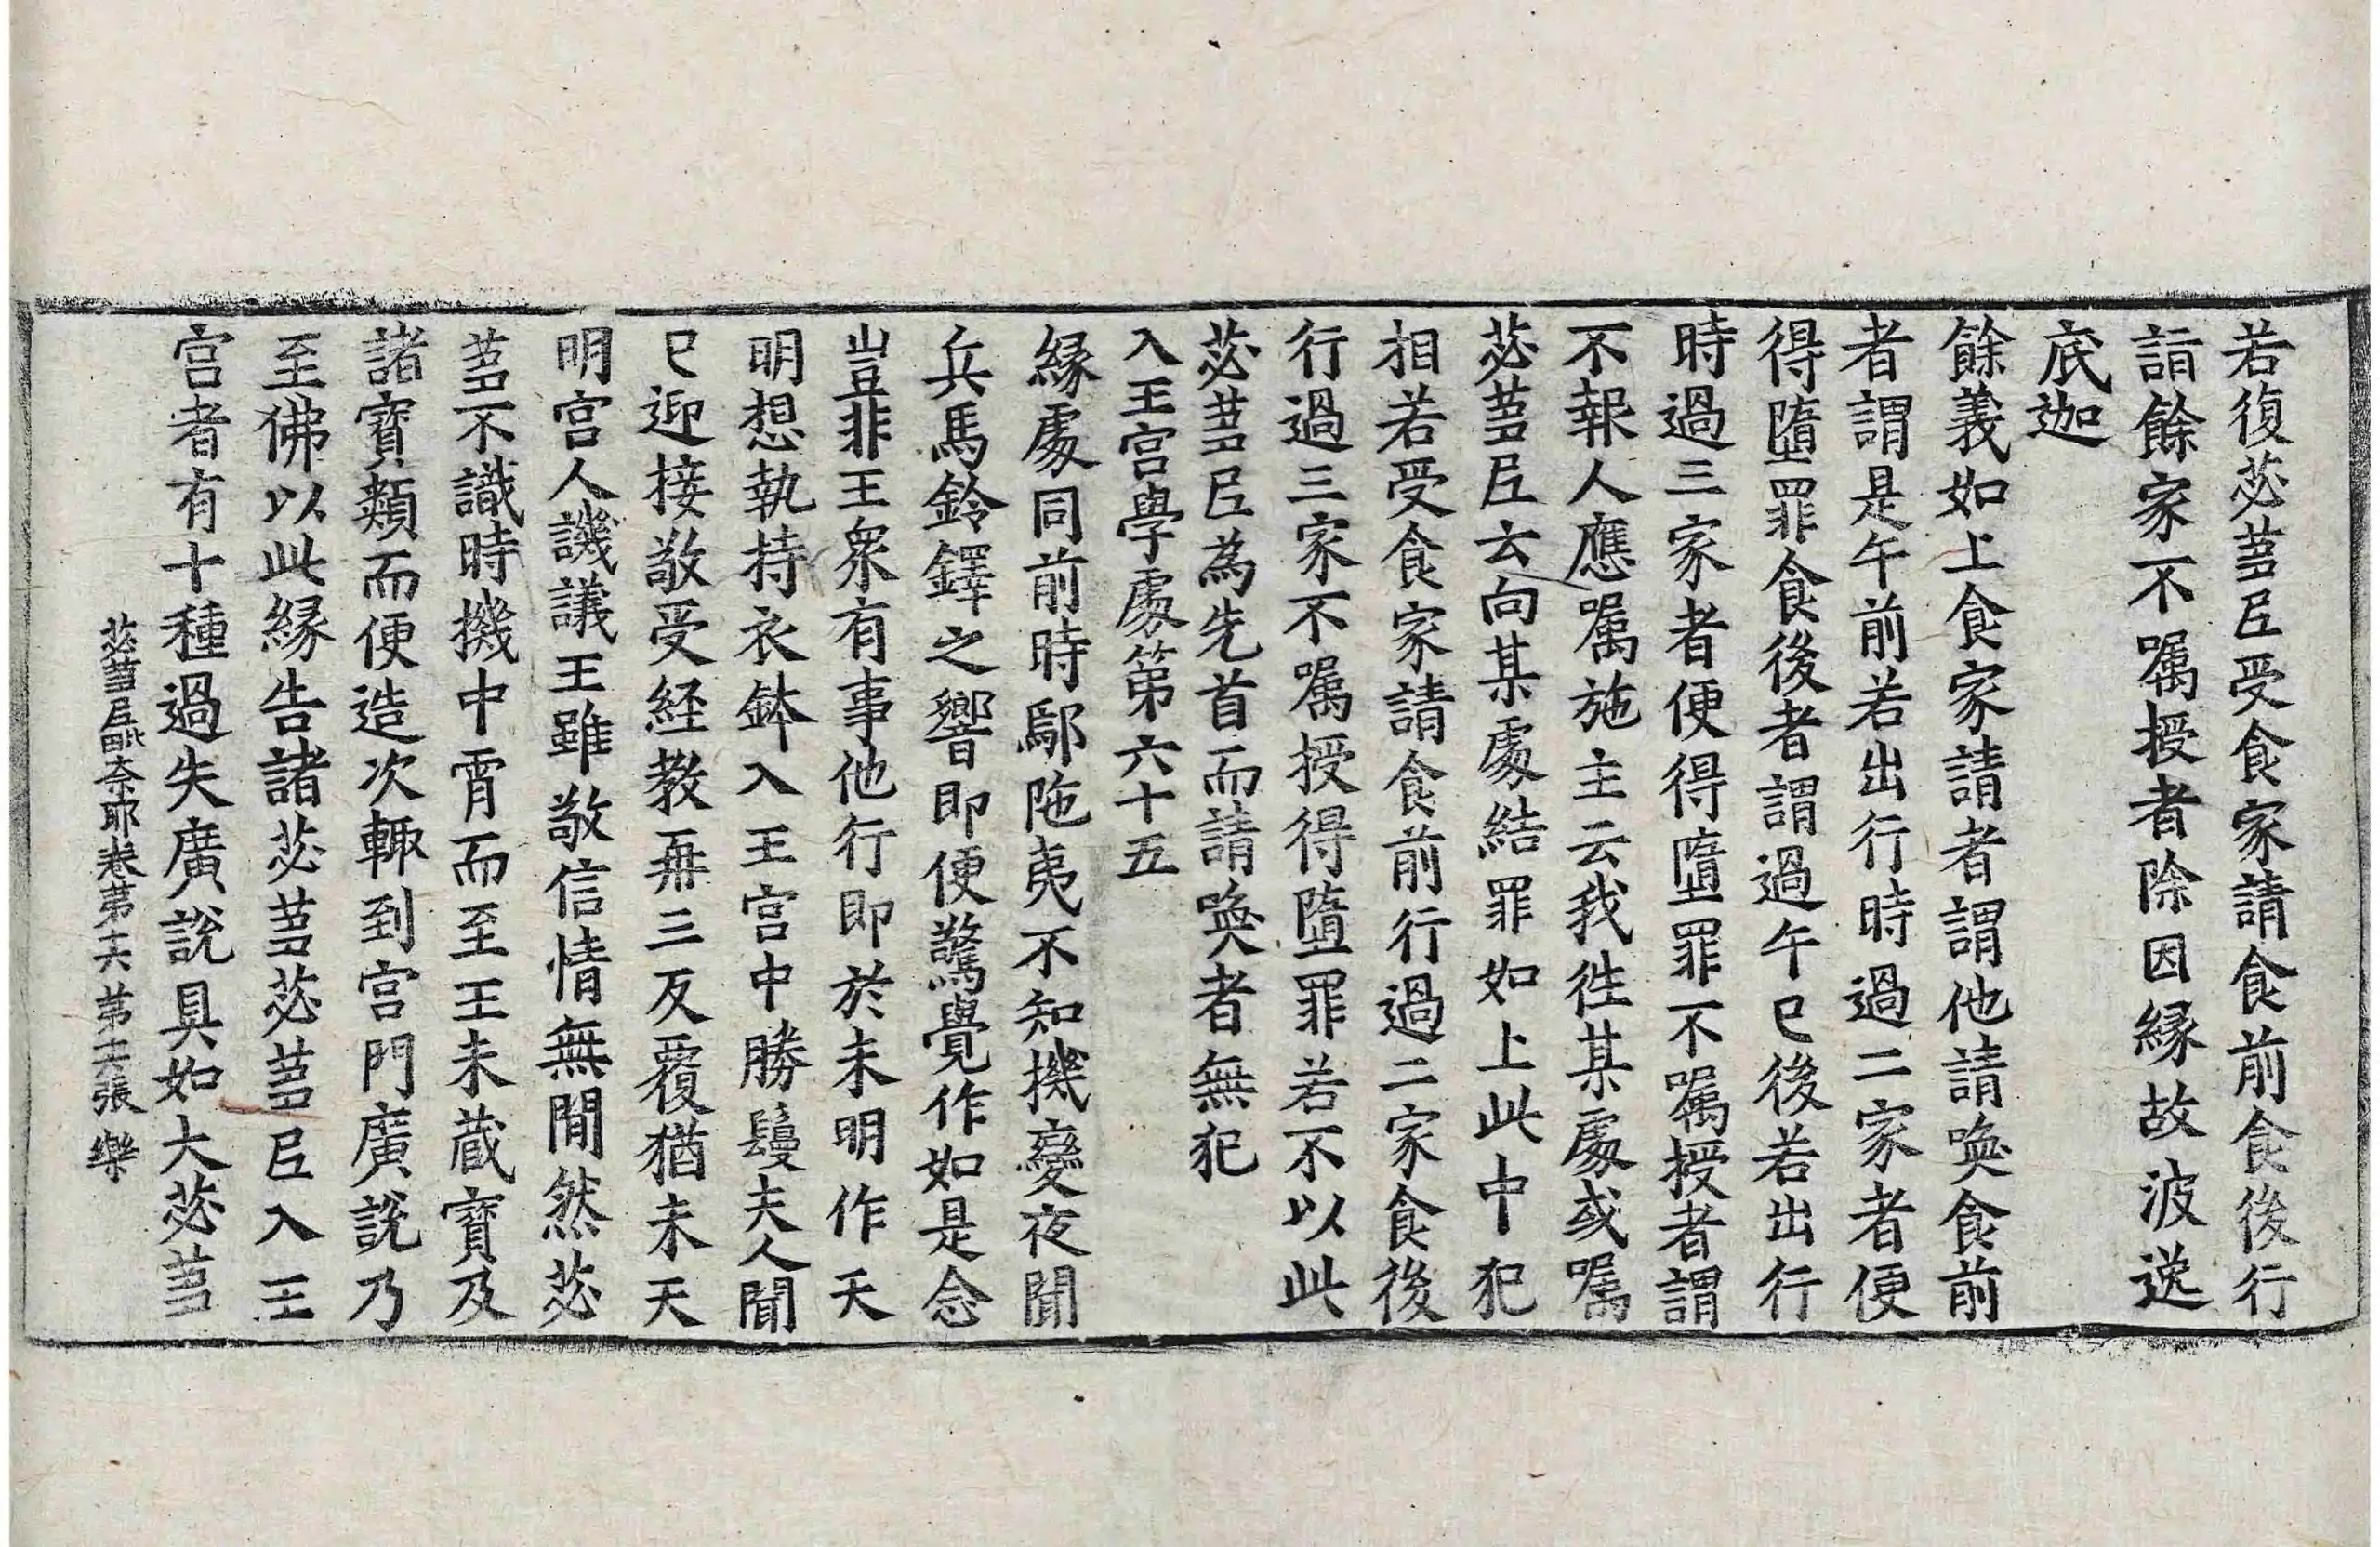 若復苾蒭尼受食家請食前食後行
詣餘家不囑授者除因緣故波逸
底迦
餘義如上食家請者謂他請喚食前
者謂是午前若出行時過二家者便
得墮罪食後者謂過午已後若出行
時過三家者便得墮罪不囑授者謂
不報人應囑施主云我往某處或囑
苾蒭尼云向某處結罪如上此中犯
相若受食家請食前行過二家食後
行過三家不囑授得墮罪若不以此
苾蒭尼為先首而請喚者無犯
入王宮學處第六十五
緣處同前時鄔陁夷不知機變夜聞
兵馬鈴鐸之響即便驚覺作如是念
豈非王眾有事他行即於未明作天
明想執持衣鉢入王宮中勝鬘夫人聞
已迎接敬受經教再三反覆猶未天
明宮人譏議王雖敬信情無間然苾
蒭不識時機中宵而至王未藏寶及
諸寶類而便造次輙到宮門廣說乃
至佛以此緣告諸苾蒭苾蒭尼入王
宮者有十種過失廣說具如大苾蒭
苾蒭尼毗奈耶卷第十六 第十六張 樂